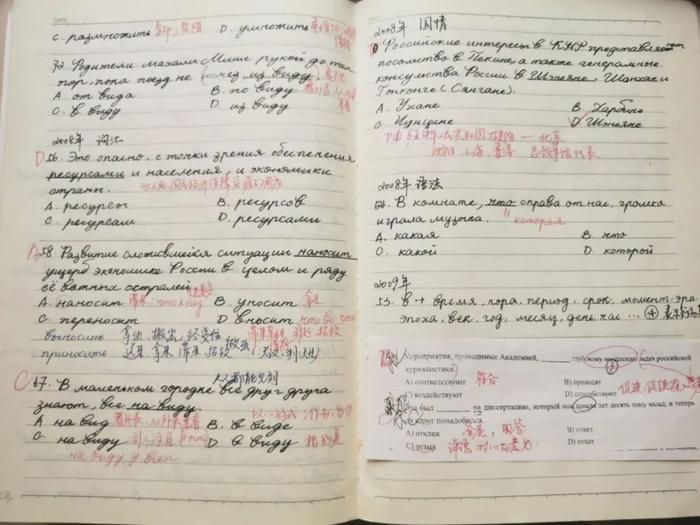 C. размножить D. умножить
72. Родители махали Мише рукой до тех
пор, пока поезд не исчез из виду.
A. от вида B. по виду
C. в виду D. из виду
2008年 词汇
D 56. Это опасно, с точки зрения обеспечения
ресурсами и населения, и экономики
страны.
A. ресурсы B. ресурсов
C. ресурсам D. ресурсами
A 58. Развитие сложившейся ситуации наносит
ущерб экономике России в целом и ряду
её важных отраслей.
A. наносит B. уносит
C. переносит D. вносит что во что
выносить 拿出, 搬出, 经受住
приносить 送来 拿来 带来
C 67. В маленьком городке все друг друга
знают, все на виду.
A. на вид B. в виде
C. на виду D. в виду
на виду у всех
2008年 国情
Российские интересы в КНР представляют
посольство в Пекине, а также генеральные
консульства России в Шэньяне, Шанхае и
Гонконге (Сянгане).
A. Ухане B. Харбине
C. Цицикаре D. Шэньяне
2008年 语法
В комнате, что справа от нас, громко
играла музыка. которая
A. какая B. что
C. какой D. которой
2009年
53. В + время, пора, период, срок, момент, эра
эпоха, век, год, месяц, день, час ...
Мероприятия, проводимые Академией, ____ глубокому пониманию задач российской
журналистики.
A) соответствуют 符合 B) приводят
C) воздействуют D) способствуют
Я был ____ на диссертацию, который она давала лет десять тому назад, и теперь
вдруг понадобился.
A) отклик B) ответ
C) отзыв D) отказ